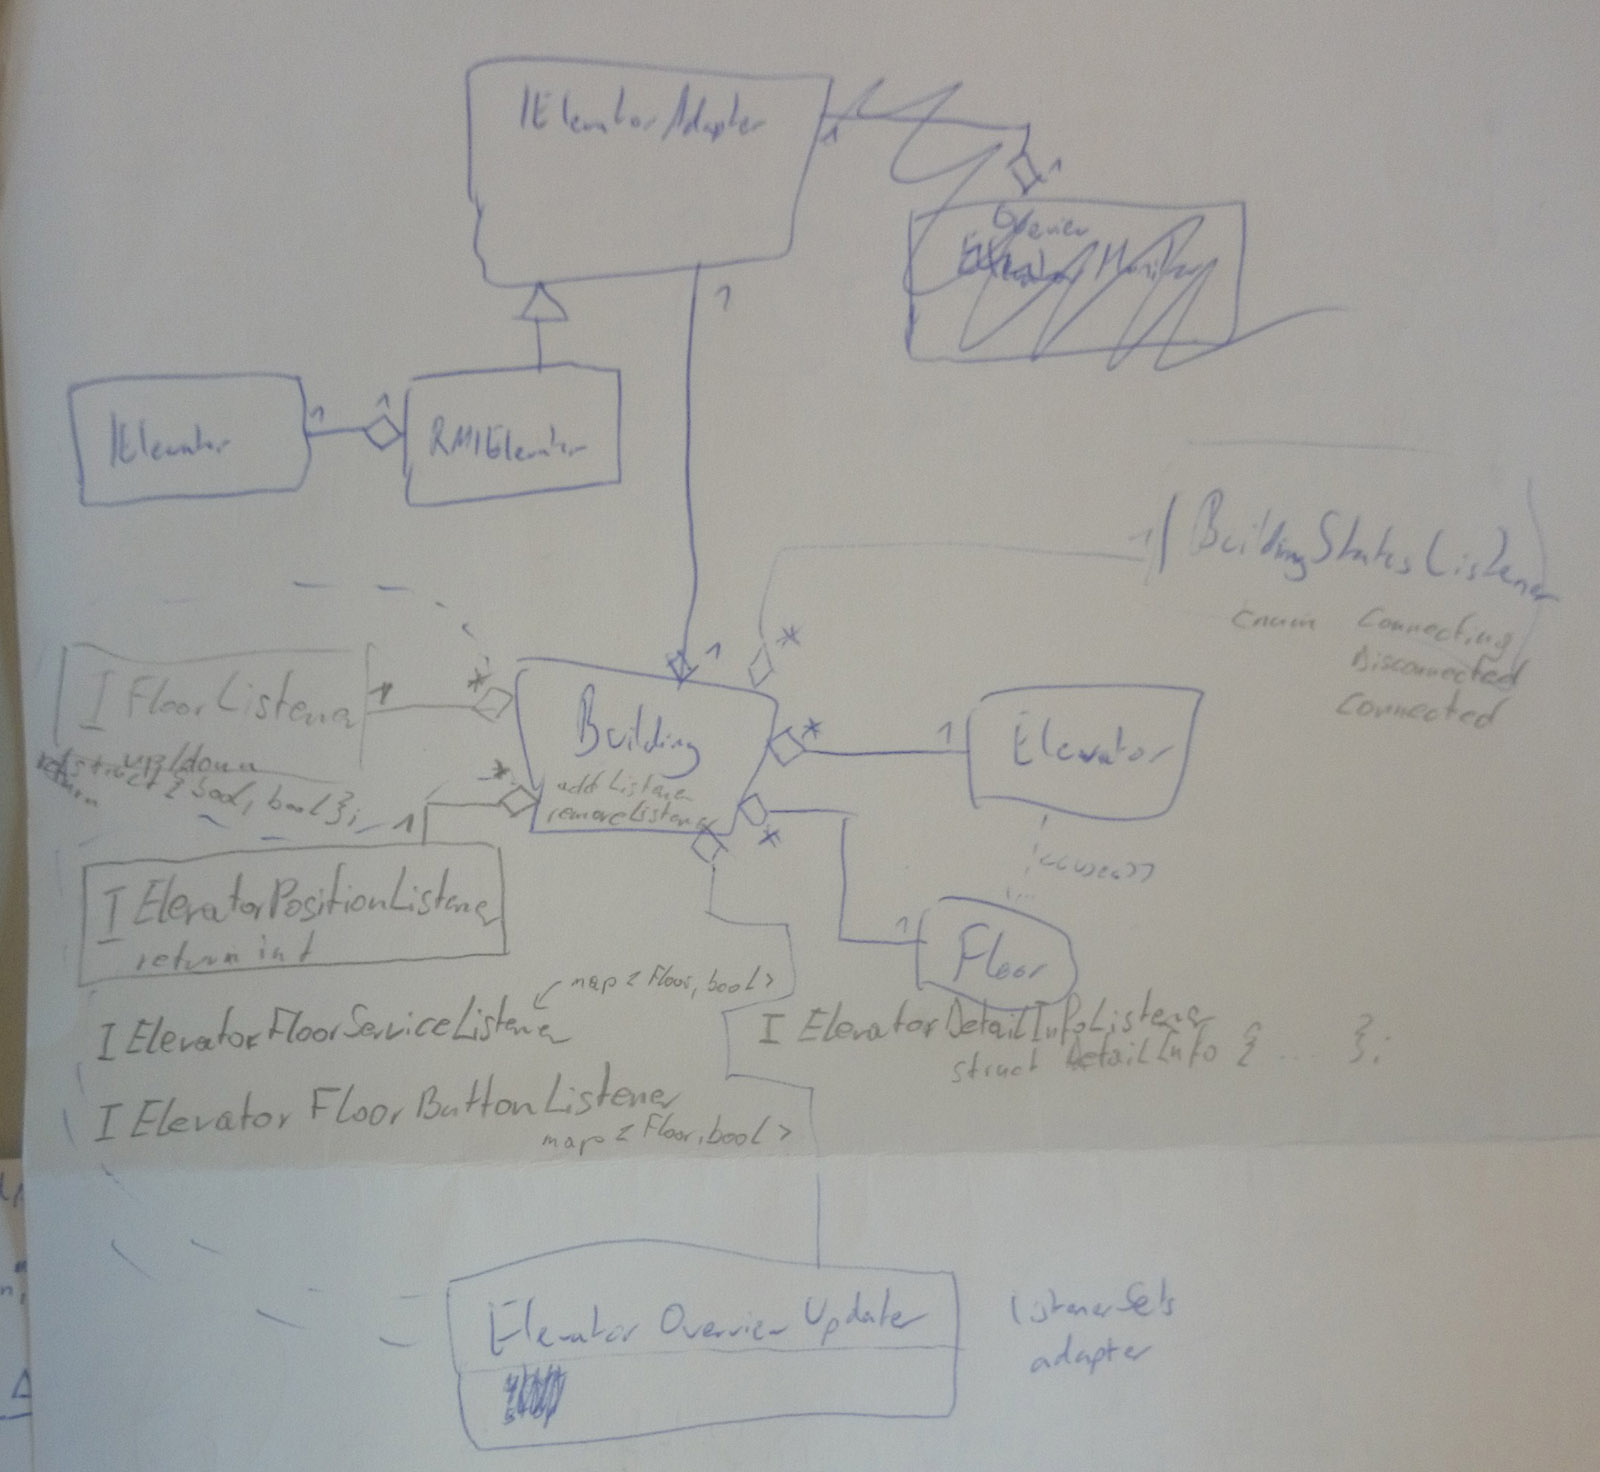 IElevatorAdapter
1
1
1
IElevator
1
1
RMIElevator
1
IBuildingStatesListener
enum Connecting
Disconnected
Connected
*
1
*
I FloorListener
1
Building
addListener
removeListener
*
1
Elevator
up/down
struct { bool, bool };
return
*
1
*
<<uses>>
I ElevatorPositionListener
return int
1
Floor
map < Floor, bool >
I ElevatorFloorServiceListener
I ElevatorDetailInfoListener
struct DetailInfo { .... };
I Elevator FloorButtonListener
map < Floor, bool >
Elevator Overview Updater
ListenerSets
adapter